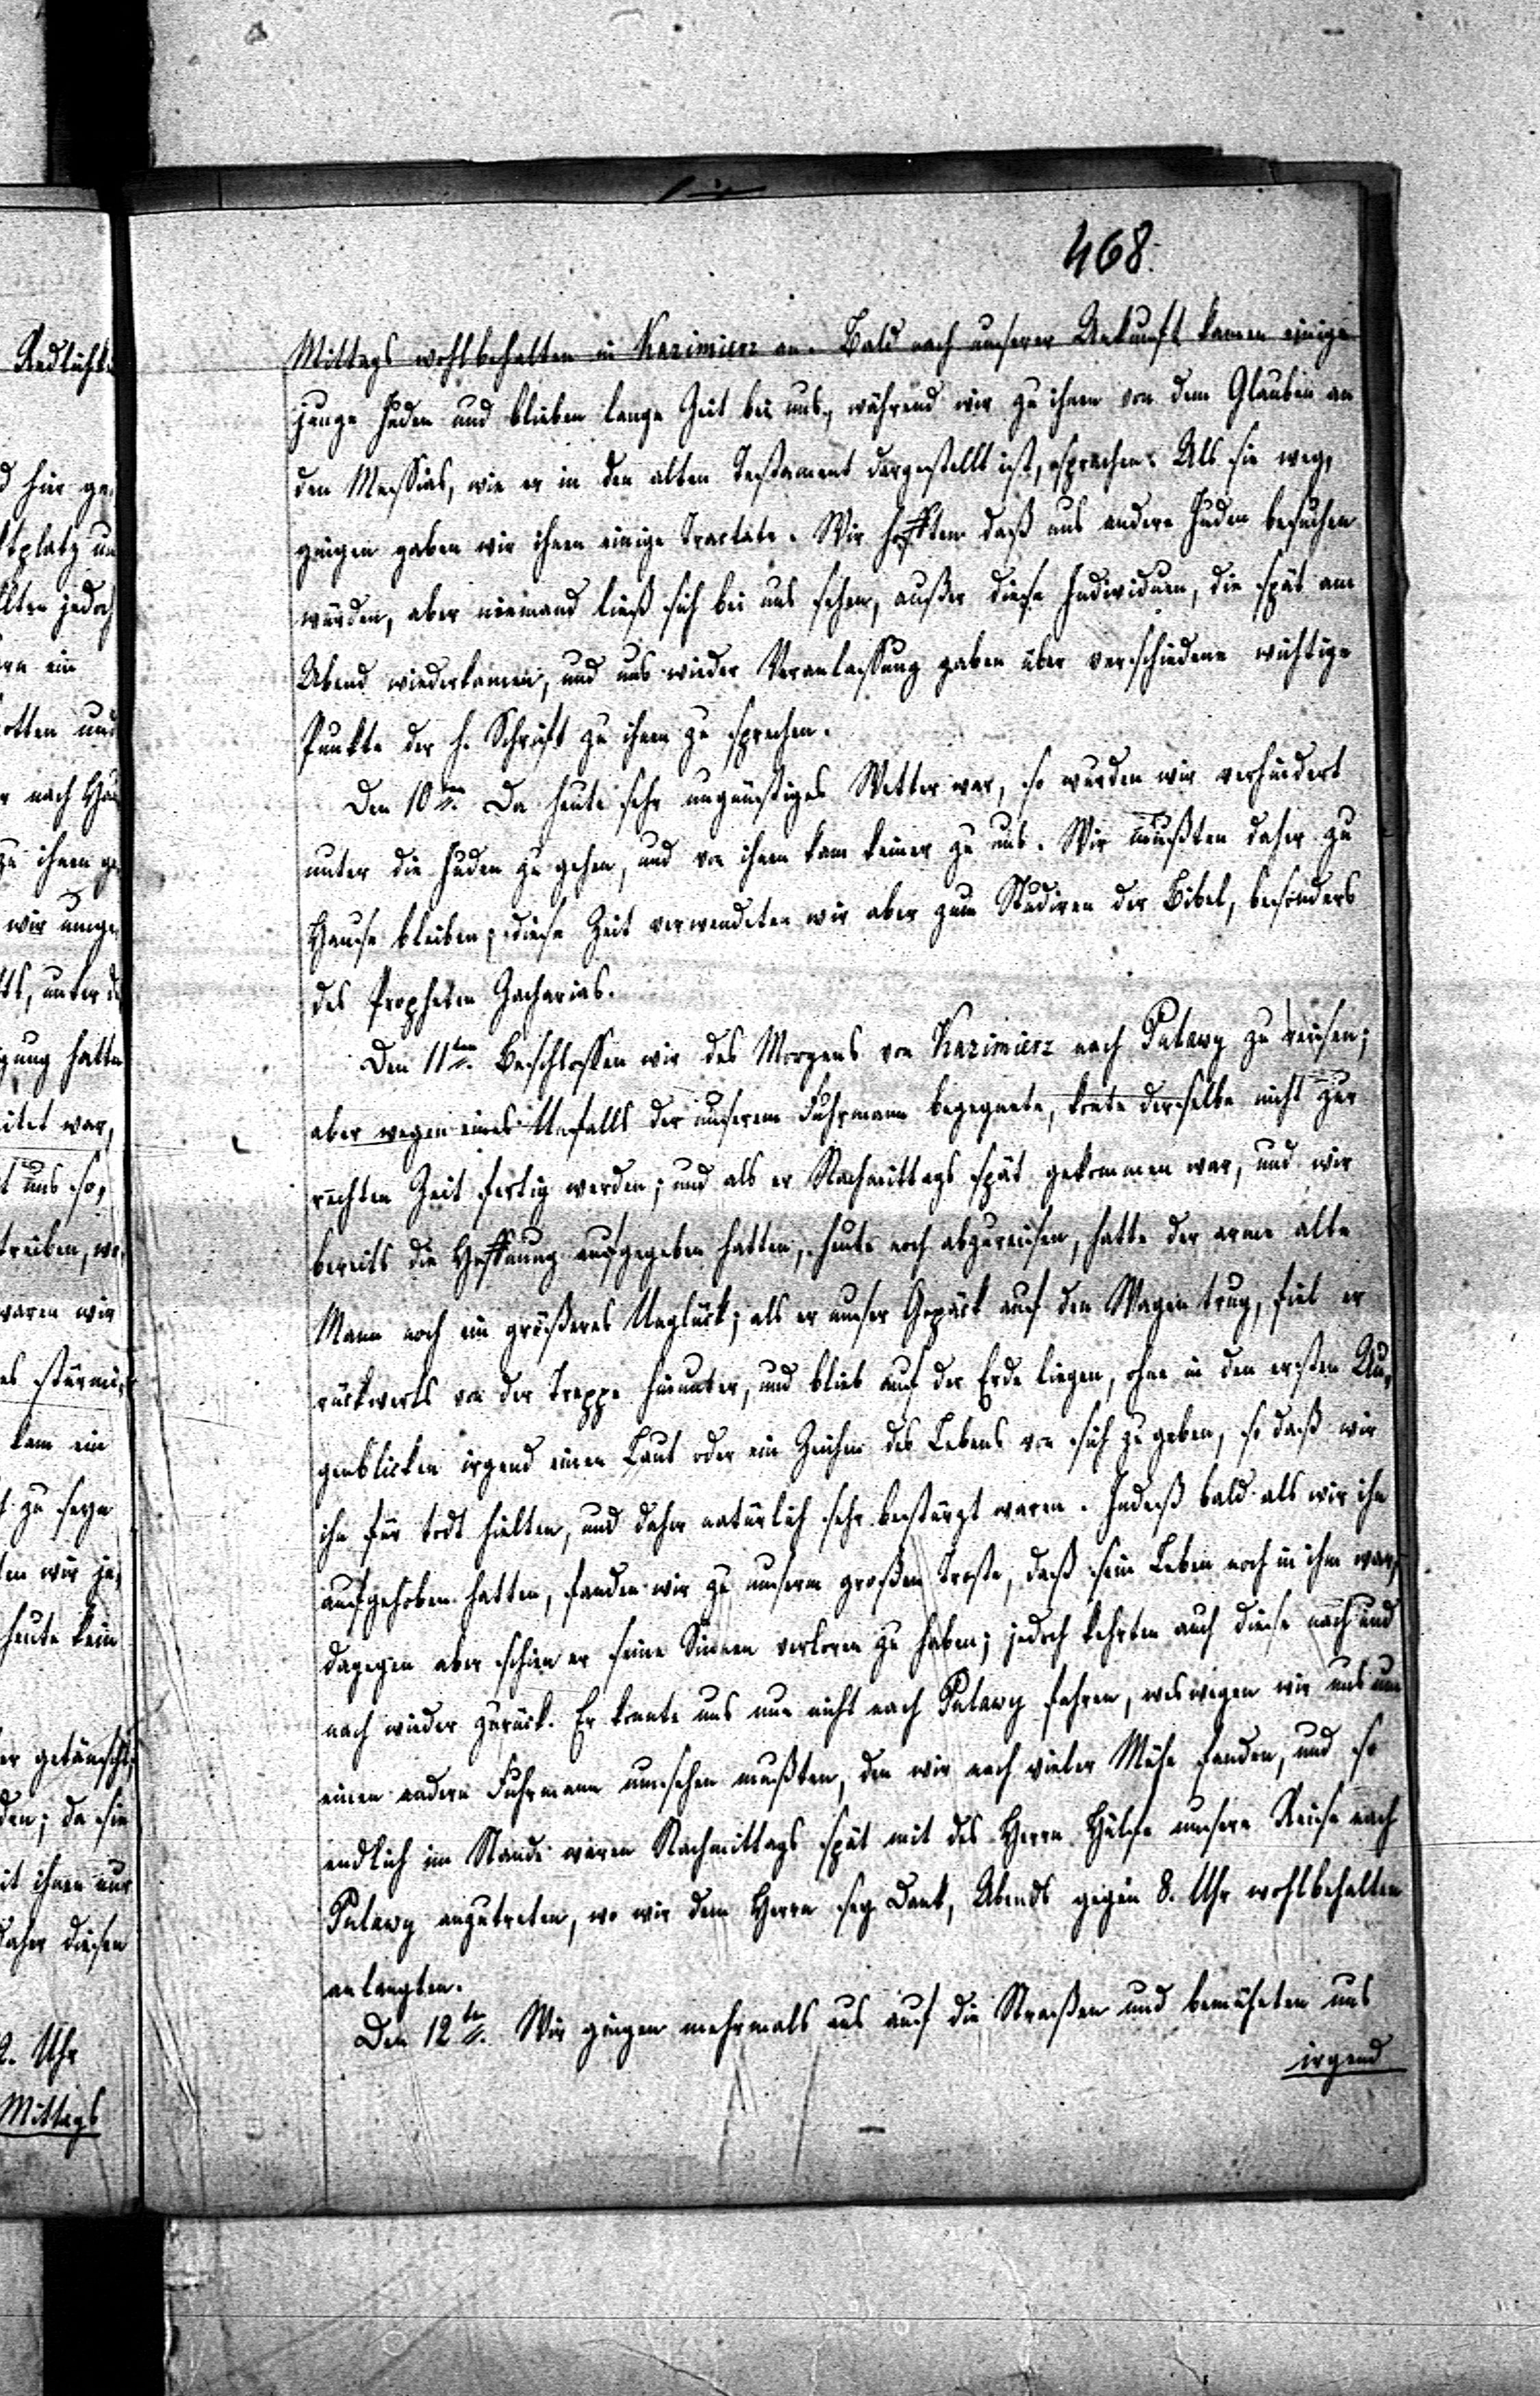 468.
Mittags wohlbehalten in Kazimierz an. Bald nach unserer Ankunft kamen einige
junge Juden und blieben lange Zeit bei uns, während wir zu ihnen von dem Glauben an
den Messias, wie er in den alten Testament dargestellt ist, sprachen. Als sie weg,
gingen gaben wir ihnen einige Tractate. Wir hofften daß uns andere Juden besuchen
würden, aber niemand ließ sich bei uns sehen, außer diese Individuen, die spät am
Abend wiederkamen, und uns wieder Veranlassung gaben über verschiedene wichtige
Punkte der h. Schrift zu ihnen zu sprechen.
Den 10ten Da heute sehr ungünstiges Wetter war, so wurden wir verhindert
unter die Juden zu gehen, und von ihnen kam keiner zu uns. Wir mußten daher zu
Hause bleiben; diese Zeit verwendeten wir aber zum Studiren der Bibel, besonders
des Propheten Zacharias.
Den 11ten Beschlossen wir des Morgens von Kazimierz nach Pulawy zu reisen;
aber wegen eines Unfalls der unserem Fuhrmann begegnete, konte derselbe nicht zur
rechten Zeit fertig werden; und als er Nachmittags spät gekommen war, und wir
bereits die Hoffnung aufgegeben hatten, heute noch abzureisen, hatte der arme alte
Mann noch ein größeres Unglück; als er unser Gepäck auf den Wagen trug, fiel er
rückwerts von der Treppe hinunter, und blieb auf der Erde liegen, ohne in den ersten Au,
genblicken irgend einen Laut oder ein Zeichen des Lebens von sich zu geben, so daß wir
ihn für todt hielten, und daher natürlich sehr bestürzt waren. Indeß bald als wir ihn
aufgehoben hatten, fanden wir zu unserm großen Troste, daß sein Leben noch in ihm war,
dagegen aber schien er seine Sinnen verloren zu haben; jedoch kehrten auch diese nach und
nach wieder zurück. Er konnte uns nun nicht nach Pulawy fahren, weswegen wir uns um
einen andern Fuhrmann umsehen mußten, den wir nach vieler Mühe fanden, und so
endlich im Stande waren Nachmittags spät mit des Herrn Hülfe unsere Reise nach
Pulawy anzutreten, wo wir dem Herrn sey Dank, Abends gegen 8. Uhr wohlbehalten
anlangten.
Den 12ten Wir gingen mehrmals aus auf die Straßen und bemühten uns
irgend